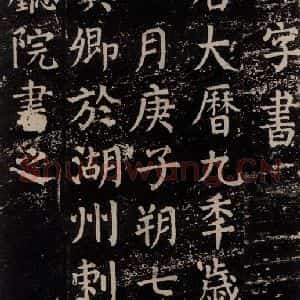 字書
大曆九秊歲
月庚子朔七
卿於湖州刺
院書之
Shufawang.CN